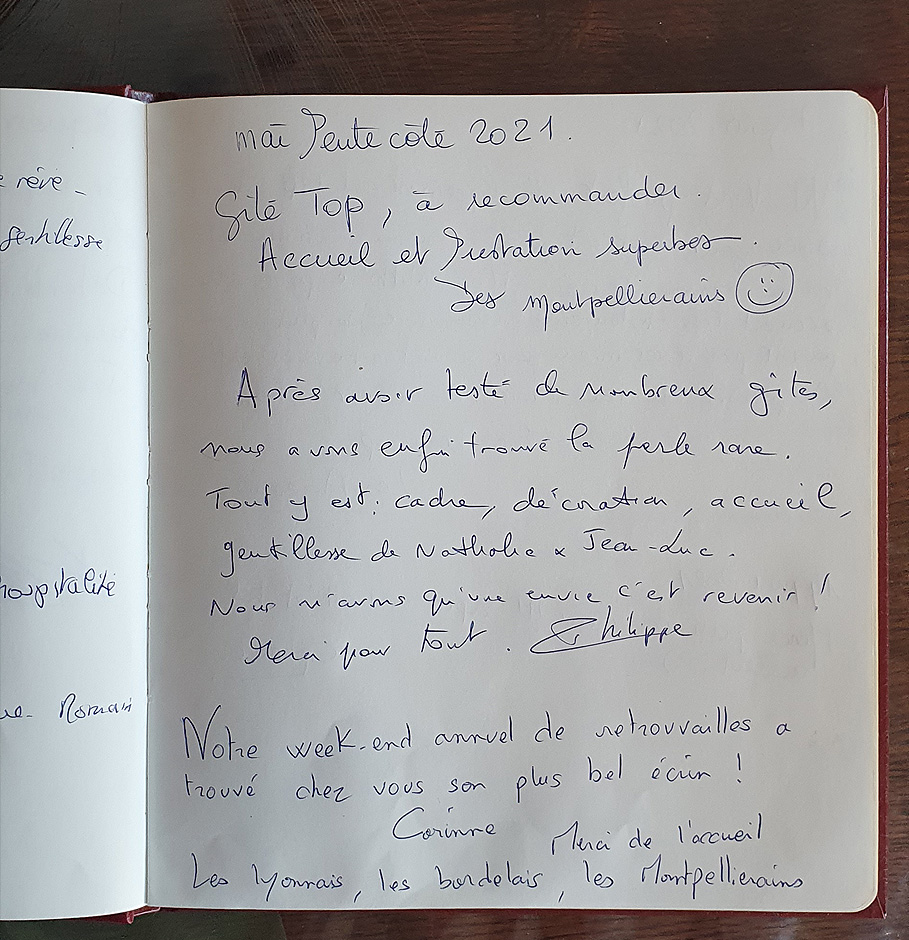 e rêve -
gentillesse
hospitalité
ue - Romain
mai Pentecôte 2021.
Gîte Top, à recommander.
Accueil et Prestation superbes.
Des Montpellierains
Après avoir testé de nombreux gîtes,
nous avons enfin trouvé la perle rare.
Tout y est : cadre, décoration, accueil,
gentillesse de Nathalie & Jean-Luc.
Nous n'avons qu'une envie c'est revenir !
Merci pour tout. Philippe
Notre week-end annuel de retrouvailles a
trouvé chez vous son plus bel écrin !
Corinne Merci de l'accueil
Les Lyonnais, les bordelais, les Montpellierains